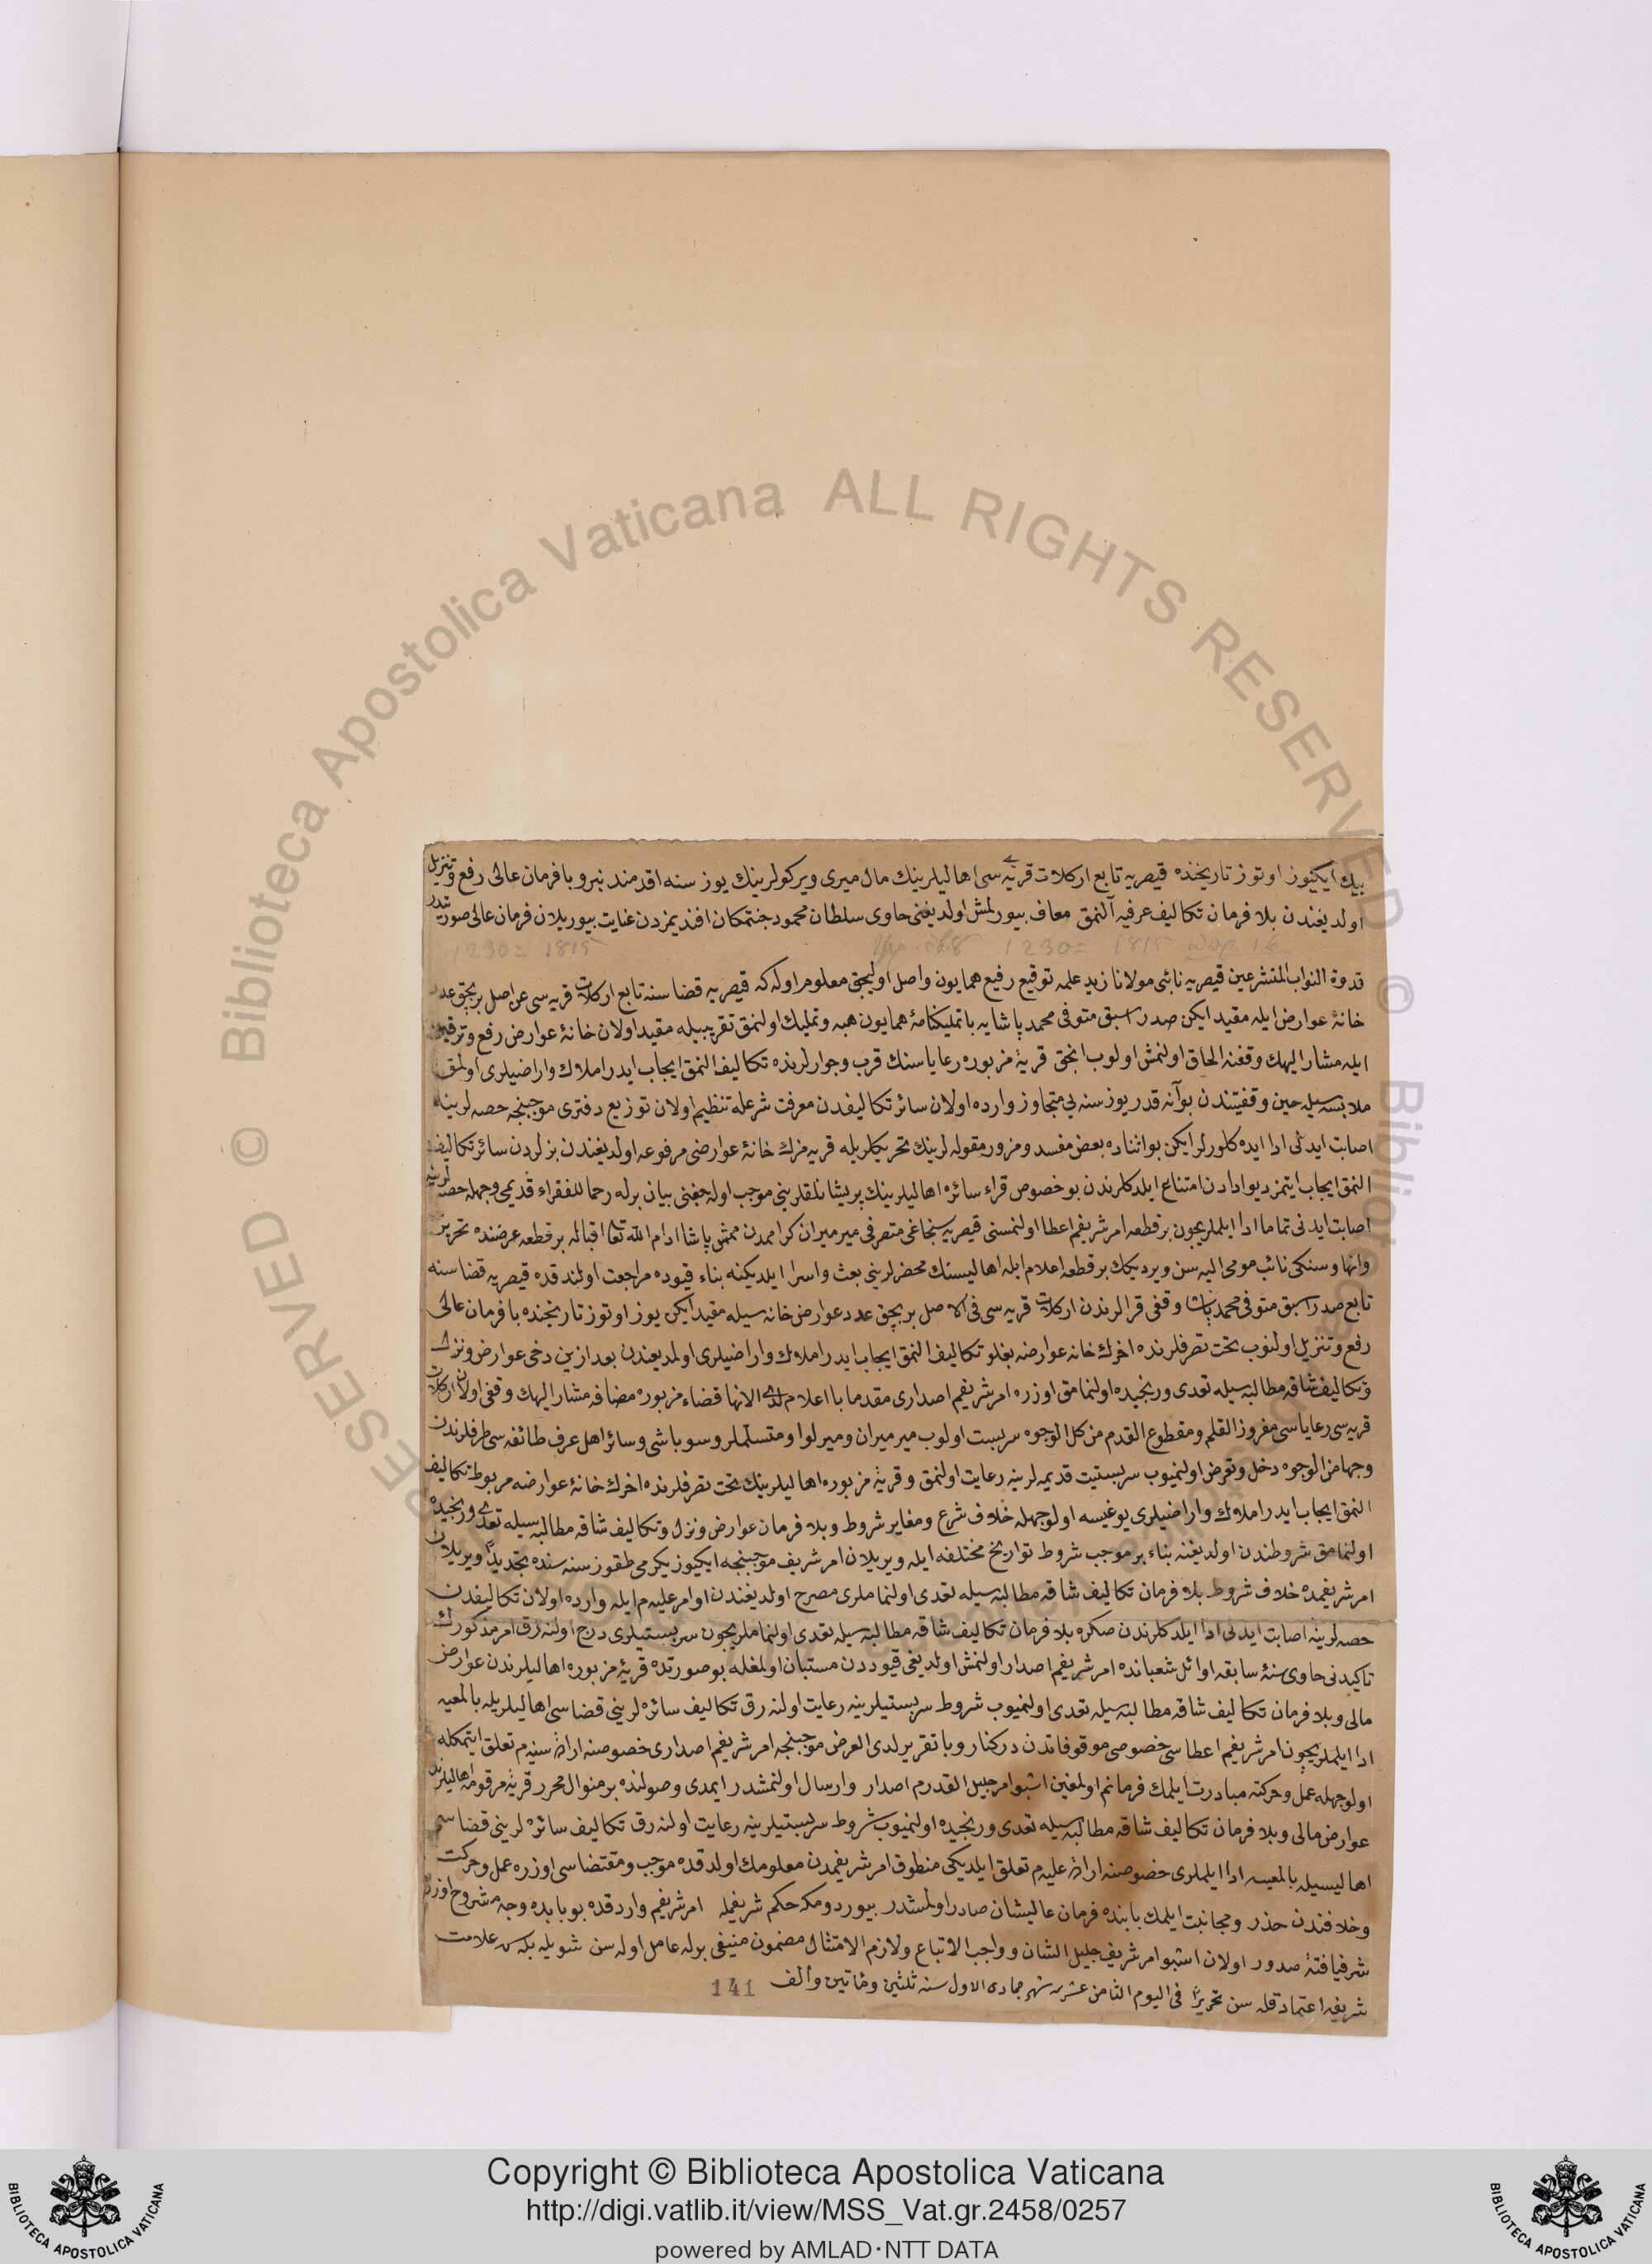 بيك ايكيوز اوتوز تاريخنده قيصريه تابع اركلات قريه سى اهاليلرينك مال ميرى ويركولرينك يوز سنه اقدمدنبرو با فرمان عالى رفع و تنزيل
اولديغندن بلا فرمان تكاليف عرفيه آلنمق معاف بيورلمش اولديغنى حاوى سلطان محمود جنتمكان افنديمزدن عنايت بيوريلان فرمان عالى صورتيدر
1230 = 1815 1230 = 1815
قدوة النواب المتشرعين قيصريه نائبى مولانا زيد علمه توقيع رفيع همايون واصل اوليجق معلوم اوله كه قيصريه قضاسنه تابع اركلات قريه سى عن اصل بربچق عدد
خانۀ عوارض ايله مقيد ايكن صدر اسبق متوفى محمد پاشايه با تمليكنامۀ همايون هبه و تمليك اولنمق تقريبيله مقيد اولان خانۀ عوارض رفع و ترقين
ايله مشار اليهك وقفنه الحاق اولنمش اولوب انجق قريۀ مزبوره رعاياسنك قرب وجوارلرنده تكاليف النمق ايجاب ايدر املاك واراضيلرى اولمق
ملابسه سيله حين وقفيتندن بو آنه قدر يوز سنه يى متجاوز وارده اولان سائر تكاليفدن معرفت شرعله تنظيم اولان توزيع دفترى موجبنجه حصه لرينه
اصابت ايدنى ادا ايده كلورلر ايكن بو اثناده بعض مفسد و مزور مقوله لرينك تحريكلريله قريه مزك خانۀ عوارضى مرفوعه اولديغندن بزلردن سائر تكاليف
النمق ايجاب ايتمز ديو ادادن امتناع ايلدكلرندن بو خصوص قراء سائره اهاليلرينك پريشانلقلرينى موجب اوله جغنى بيان برله رحما للفقراء قديمى وجهله حصه لرينه
اصابت ايدنى تماما ادا ايلملريچون بر قطعه امر شريفم اعطا اولنمسنى قيصريه سنجاغى متصرفى مير ميران كرامدن ممش پاشا ادام الله تعالى اقباله بر قطعه عرضنده تحرير
وانها و سنكى نائب مومى اليه سن ويرديكك بر قطعه اعلام ايله اهاليسنك محضرلرينى بعث و اسرا ايلديكنه بناء قيوده مراجعت اولندقده قيصريه قضاسنه
تابع صدر اسبق متوفى محمد پاشا وقفى قرالرندن اركلات قريه سى فى الاصل بربچق عدد عوارض خانه سيله مقيد ايكن يوز اوتوز تاريخنده با فرمان عالى
رفع و تنزيل اولنوب تحت تصرفلرنده اخرك خانه عوارضه بغلو تكاليف النمق ايجاب ايدر املاك واراضيلرى اولمديغندن بعد ازين دخى عوارض و نزل
و تكاليف شاقه مطالبه سيله تعدى و رنجيده اولنمامق اوزره امر شريفم اصدارى مقدما با اعلام لدى الانها قضاء مزبوره مضافه مشار اليهك وقفى اولان اركلات
قريه سى رعاياسى مفروز القلم و مقطوع القدم من كل الوجوه سربست اولوب مير ميران و مير لوا و متسلملر و سوباشى و سائر اهل عرف طائفه سى طرفلرندن
وجها من الوجوه دخل و تعرض اولنميوب سربستيت قديمه لرينه رعايت اولنمق و قريۀ مزبوره اهاليلرينك تحت تصرفلرنده اخرك خانۀ عوارضه مربوط تكاليف
النمق ايجاب ايدر املاك واراضيلرى يوغيسه اولوجهله خلاف شرع و مغاير شروط و بلا فرمان عوارض و نزل و تكاليف شاقه مطالبه سيله تعدى و رنجيده
اولنمامق شروطندن اولديغنه بناء بر موجب شروط تواريخ مختلفه ايله ويريلان امر شريف موجبنجه ايكيوز يكرمى طقوز سنه سنده تجديدًا ويريلان
امر شريفمده خلاف شروط بلا فرمان تكاليف شاقه مطالبه سيله تعدى اولنماملرى مصرح اولديغندن اوامر عليه م ايله وارده اولان تكاليفدن
حصه لرينه اصابت ايدنى ادا ايلدكلرندن صكره بلا فرمان تكاليف شاقه مطالبه سيله تعدى اولنماملريچون سربستيلرى درج اولنه رق امر مذكورك
تاكيدنى حاوى سنۀ سابقه اوائل شعبانده امر شريفم اصدار اولنمش اولديغى قيوددن مستبان اولمغله بو صورتده قريۀ مزبوره اهاليلرندن عوارض
مالى و بلا فرمان تكاليف شاقه مطالبه سيله تعدى اولنميوب شروط سربستيلرينه رعايت اولنه رق تكاليف سائره لرينى قضاسى اهاليلريله بالمعيه
ادا ايلملريچون امر شريفم اعطاسى خصوصى موقوفاتدن دركنار و با تقرير لدى العرض موجبنجه امر شريفم اصدارى خصوصنه ارادۀ سنيه م تعلق ايتمكله
اولوجهله عمل و حركته مبادرت ايلمك فرمانم اولمغين اشبو امر جليل القدرم اصدار و ارسال اولنمشدر ايمدى وصولنده بر منوال محرر قريۀ مرقومه اهاليلرندن
عوارض مالى و بلا فرمان تكاليف شاقه مطالبه سيله تعدى و رنجيده اولنميوب شروط سربستيلرينه رعايت اولنه رق تكاليف سائره لرينى قضاسى
اهاليسيله بالمعيه ادا ايلملرى خصوصنه ارادۀ عليه م تعلق ايلديكى منطوق امر شريفمدن معلومك اولدقده موجب و مقتضاسى اوزره عمل و حركت
و خلافندن حذر و مجانبت ايلمك بابنده فرمان عاليشان صادر اولمشدر بيوردومكه حكم شريفمله امر شريفم واردقده بو بابده وجه مشروح اوزره
شرفيافتۀ صدور اولان اشبو امر شريف جليل الشان و واجب الاتباع و لازم الامتثال مضمون منيفى برله عامل اوله سن شويله بله سن علامت
شريفه اعتماد قله سن تحريرًا فى اليوم الثامن عشر من شهر جمادى الاول سنه ثلثين و مأتين و ألف
141
Copyright © Biblioteca Apostolica Vaticana
http://digi.vatlib.it/view/MSS_Vat.gr.2458/0257
powered by AMLAD·NTT DATA
BIBLIOTECA APOSTOLICA VATICANA
BIBLIOTECA APOSTOLICA VATICANA
© Biblioteca Apostolica Vaticana ALL RIGHTS RESERVED